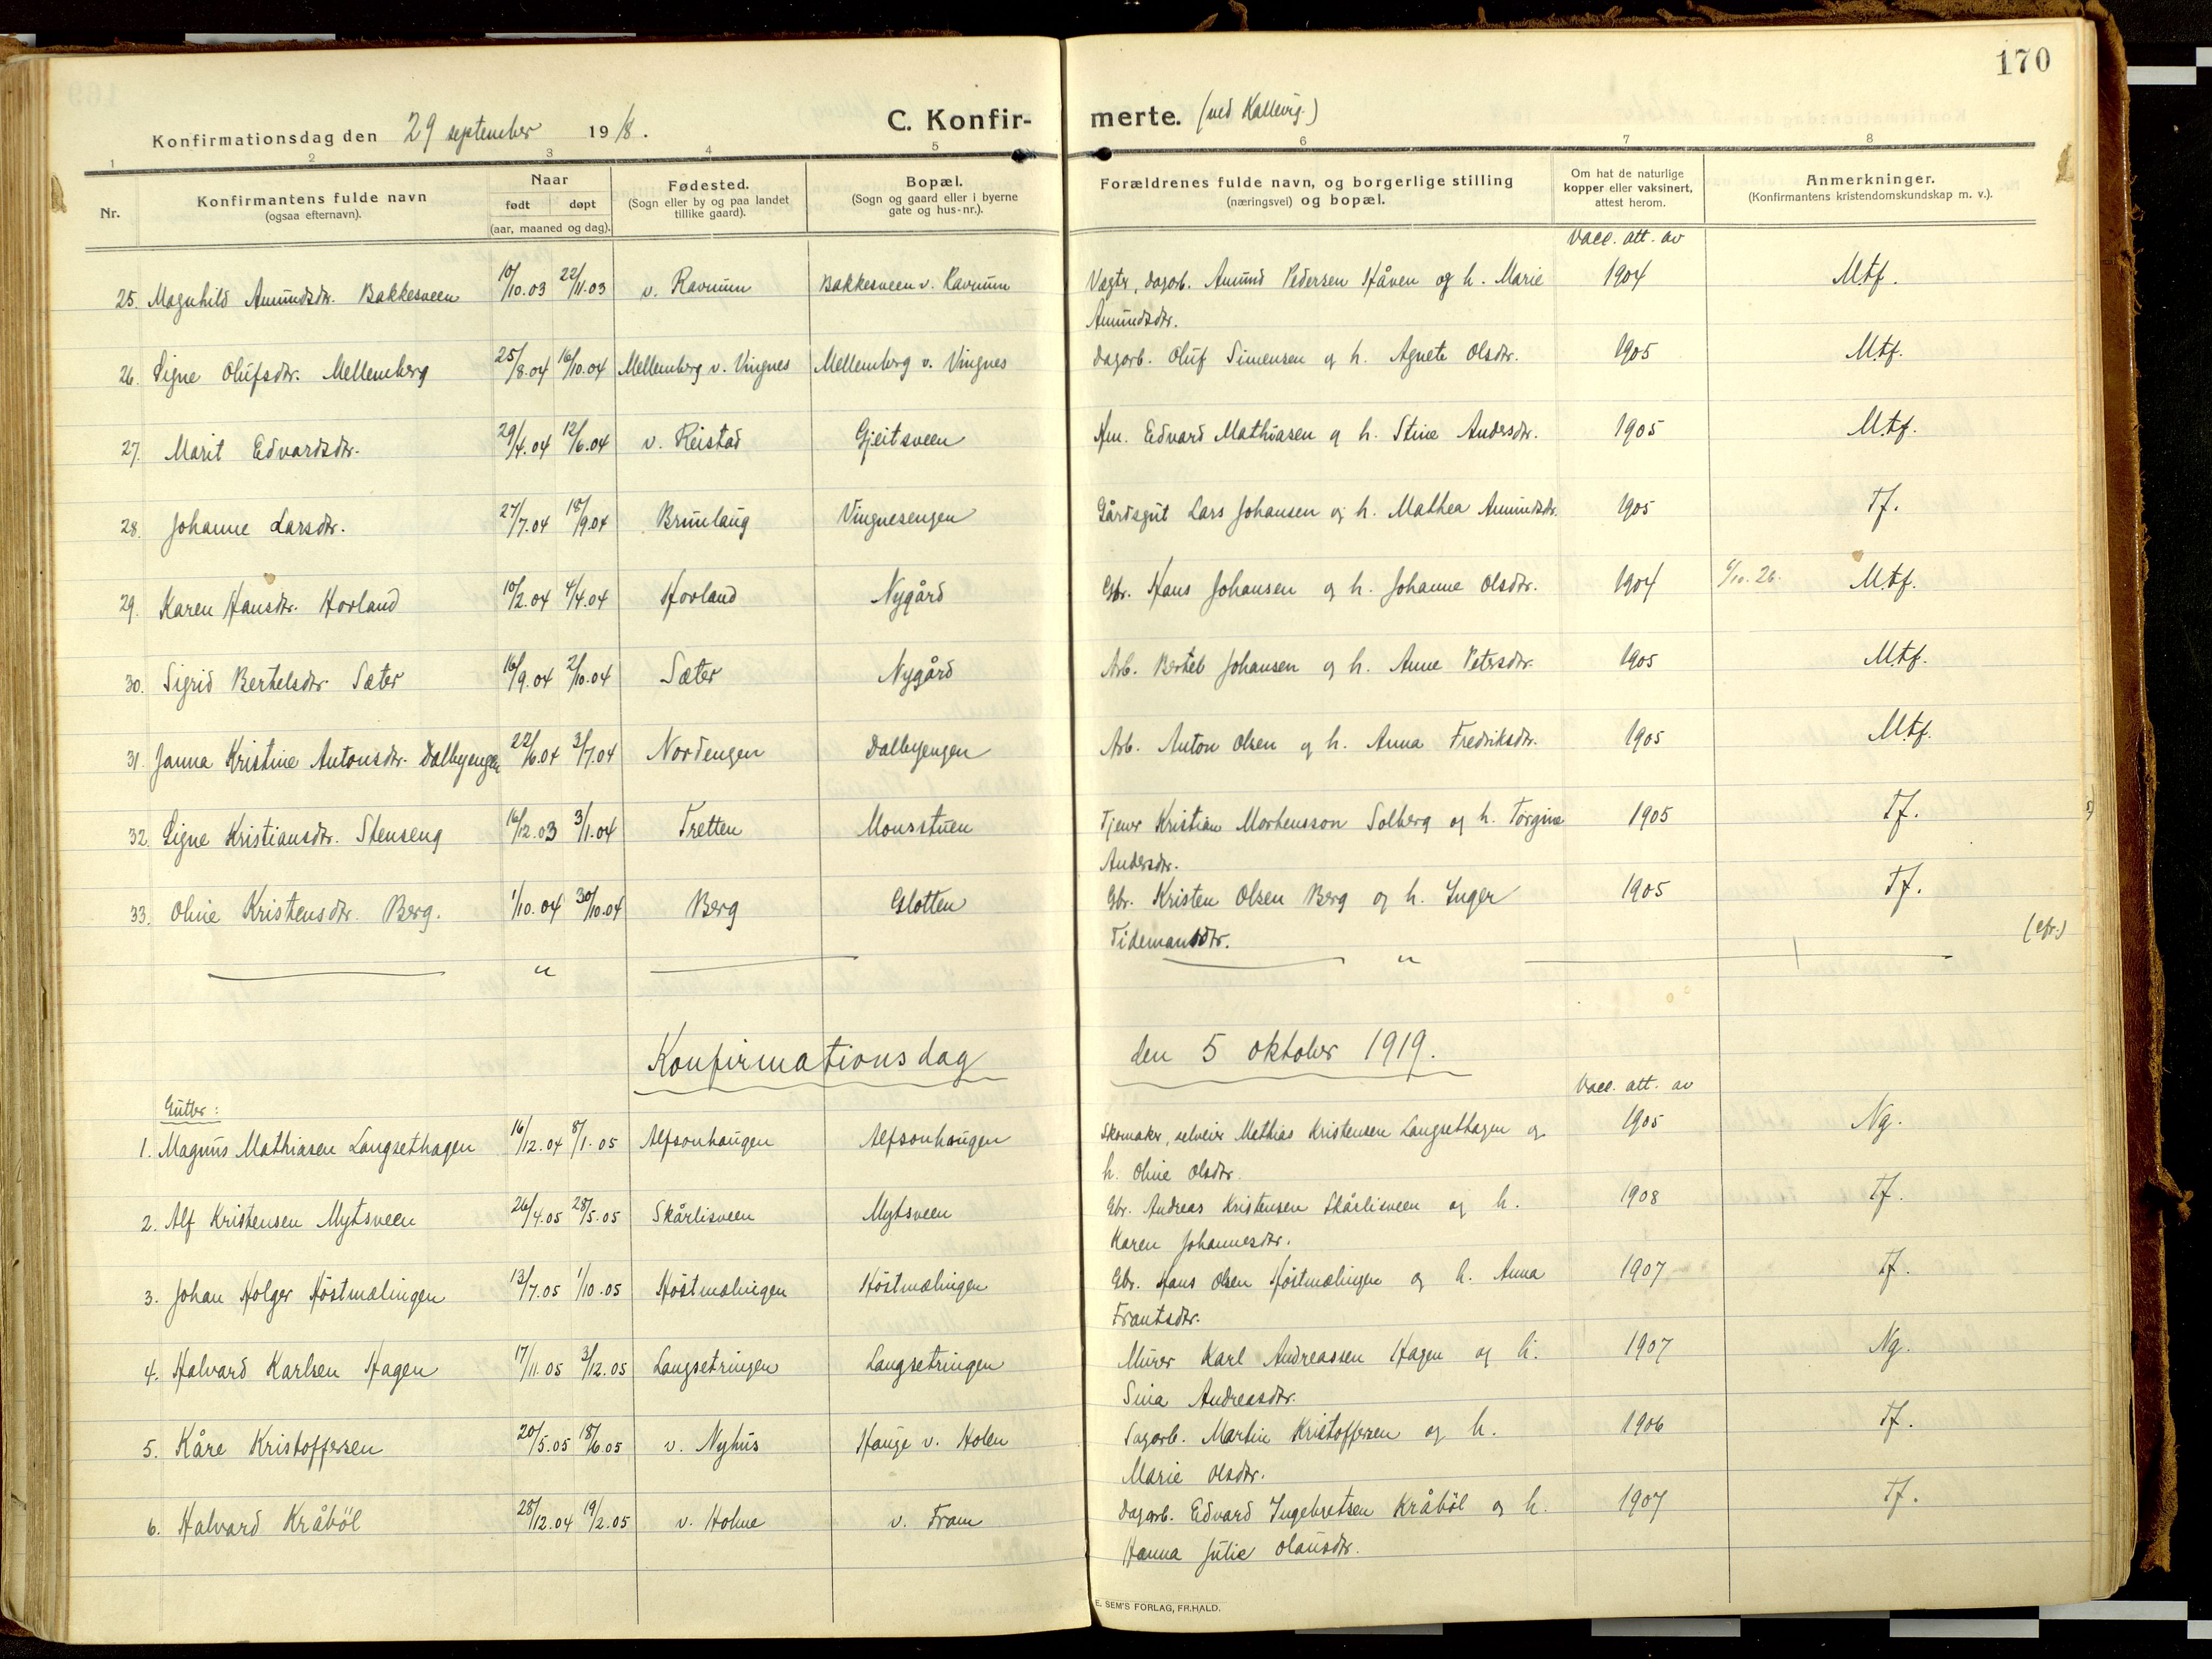 170
Konfirmationsdag den 29 september 1918. C. Konfirmerte. (ved Kallevig.)
1 2 3 4 5 6 7 8
Nr.
Konfirmantens fulde navn
(ogsaa efternavn).
Naar
født døpt
(aar, maaned og dag).
Fødested.
(Sogn eller by og paa landet
tillike gaard).
Bopæl.
(Sogn og gaard eller i byerne
gate og hus-nr.).
Forældrenes fulde navn, og borgerlige stilling
(næringsvei) og bopæl.
Om hat de naturlige
kopper eller vaksinert,
attest herom.
Anmerkninger.
(Konfirmantens kristendomskundskap m. v.).
Vacc. att. av
25. Magnhild Amundsdtr. Bakkesveen 10/10.03 22/11.03 v. Ravnum Bakkesveen v. Ravnum Vogtr, dagarb. Amund Pedersen Håven og h. Marie 1904 Mtf.
Amundsdtr.
26. Signe Olufsdtr. Mellemberg 25/8.04 16/10.04 Mellemberg v. Vingnes Mellemberg v. Vingnes Dagarb. Oluf Simensen og h. Agnete Olsdtr. 1905 Mtf.
27. Marit Edvardsdtr. 29/4.04 12/6.04 v. Reistad Gjeitsveen Edvard Mathiasen og h. Stine Andersdtr. 1905 Mtf.
28. Johanne Larsdtr. 27/7.04 18/9.04 Brunlaug Vingnesengen Gårdsgut Lars Johansen og h. Mathea Amundsdtr. 1905 Tf.
29. Karen Hansdtr. Hovland 10/2.04 4/4.04 Hovland Nygård Gbr. Hans Johansen og h. Johanne Olsdtr. 1904 6/10.26. Mtf.
30. Sigrid Bertelsdtr. Sæter 16/9.04 2/10.04 Sæter Nygård Arb. Bertel Johansen og h. Anne Petersdtr. 1905 Mtf.
31. Janna Kristine Antonsdtr. Dalbyengen 22/6.04 3/7.04 Nordengen Dalbyengen Arb. Anton Olsen og h. Anna Fredriksdtr. 1905 Mtf.
32. Signe Kristiansdtr. Stenseng 16/12.03 3/1.04 Tretten Monsstuen Tjener Kristian Mortensson Solberg og h. Torgine 1905 Tf.
Andersdtr.
33. Oline Kristensdtr. Berg. 1/10.04 30/10.04 Berg Slotten Gbr. Kristen Olsen Berg og h. Inger 1905 Tf.
Tidemansdtr. (cfr.)
" "
Konfirmationsdag den 5 oktober 1919.
Vacc. att. av
Gutter:
1. Magnus Mathiasen Langsethagen 16/12.04 8/1.05 Alfsonhaugen Alfsonhaugen Skomaker, selveier Mathias Kristensen Langsethagen og 1905 Ng.
h. Oline Olsdtr.
2. Alf Kristensen Mytsveen 26/4.05 28/5.05 Skårlisveen Mytsveen Gbr. Andreas Kristensen Skårlisveen og h. 1908 Tf.
Karen Johannesdtr.
3. Johan Holger Höstmælingen 13/7.05 1/10.05 Höstmælingen Höstmælingen Gbr. Hans Olsen Höstmælingen og h. Anna 1907 Tf.
Frantsdtr.
4. Halvard Karlsen Hagen 17/11.05 3/12.05 Langsetringen Langsetringen Murer Karl Andreassen Hagen og h. 1907 Ng.
Sina Andreasdtr.
5. Kåre Kristoffersen 20/5.05 18/6.05 v. Nyhus Hauge v. Holen Sagarb. Martin Kristoffersen og h. 1906 Tf.
Marie Olsdtr.
6. Halvard Kråböl 28/12.04 19/2.05 v. Holme v. Fram Dagarb. Edvard Ingebretsen Kråböl og h. 1907 Tf.
Hanna Julie Olausdtr.
E. SEM'S FORLAG, FR.HALD.